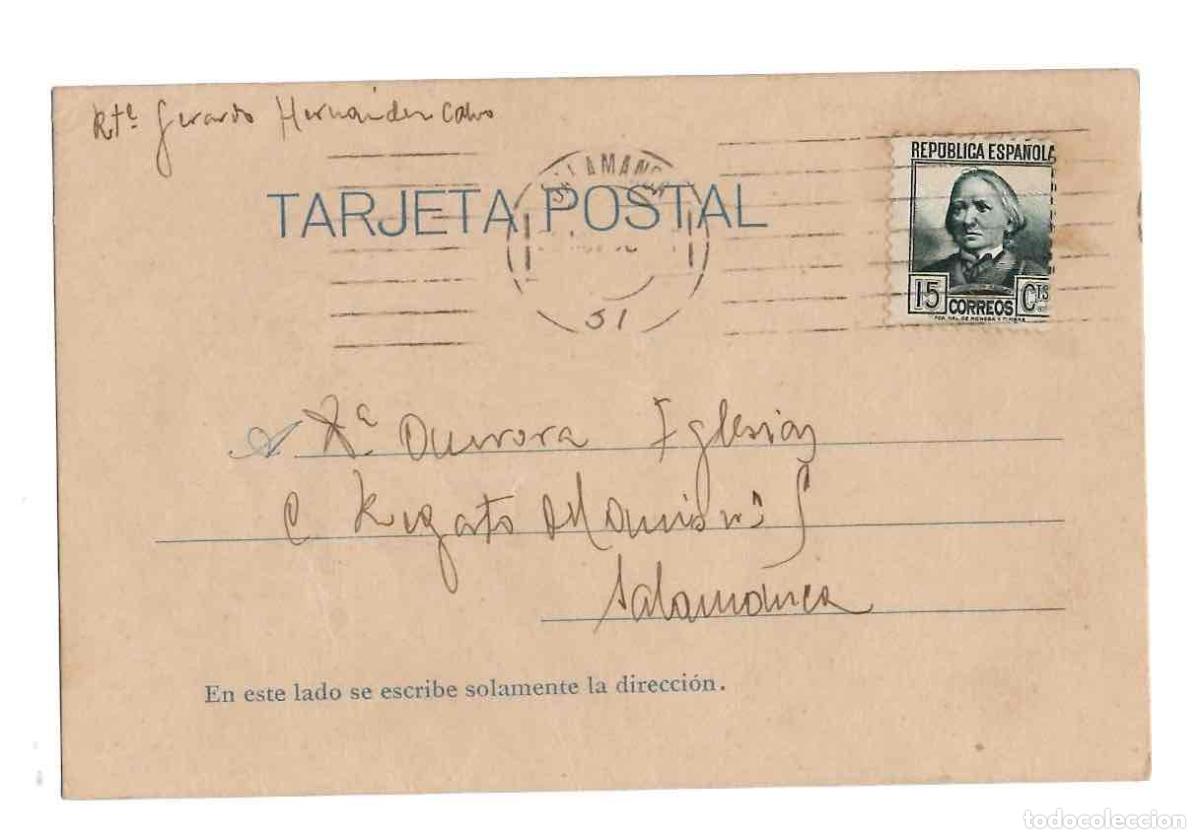 Rte Gerardo Hernández Calvo
SALAMANCA
TARJETA POSTAL
31
REPÚBLICA ESPAÑOLA
15 CORREOS CTS
A Dª Aurora Iglesias
C
Salamanca
En este lado se escribe solamente la dirección.
todocoleccion